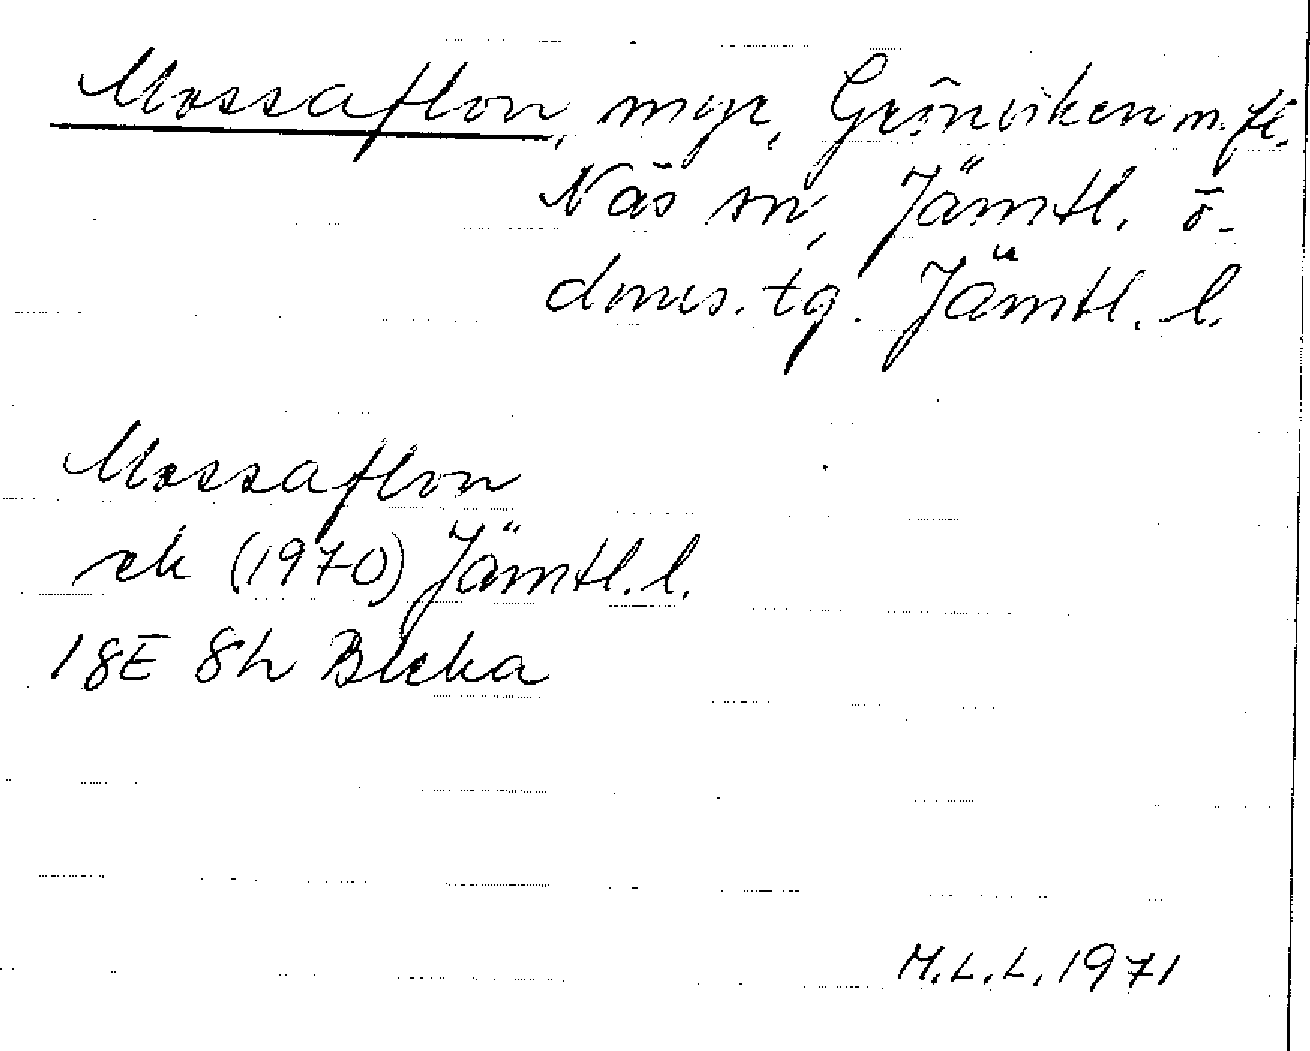 Mossaflon, myr, Grönviken m.fl.
Näs sn, Jämtl. ö.
doms. tg. Jämtl. l.
Mossaflon
ek (1970) Jämtl. l.
18E 8h Bleka
M.L.L. 1971